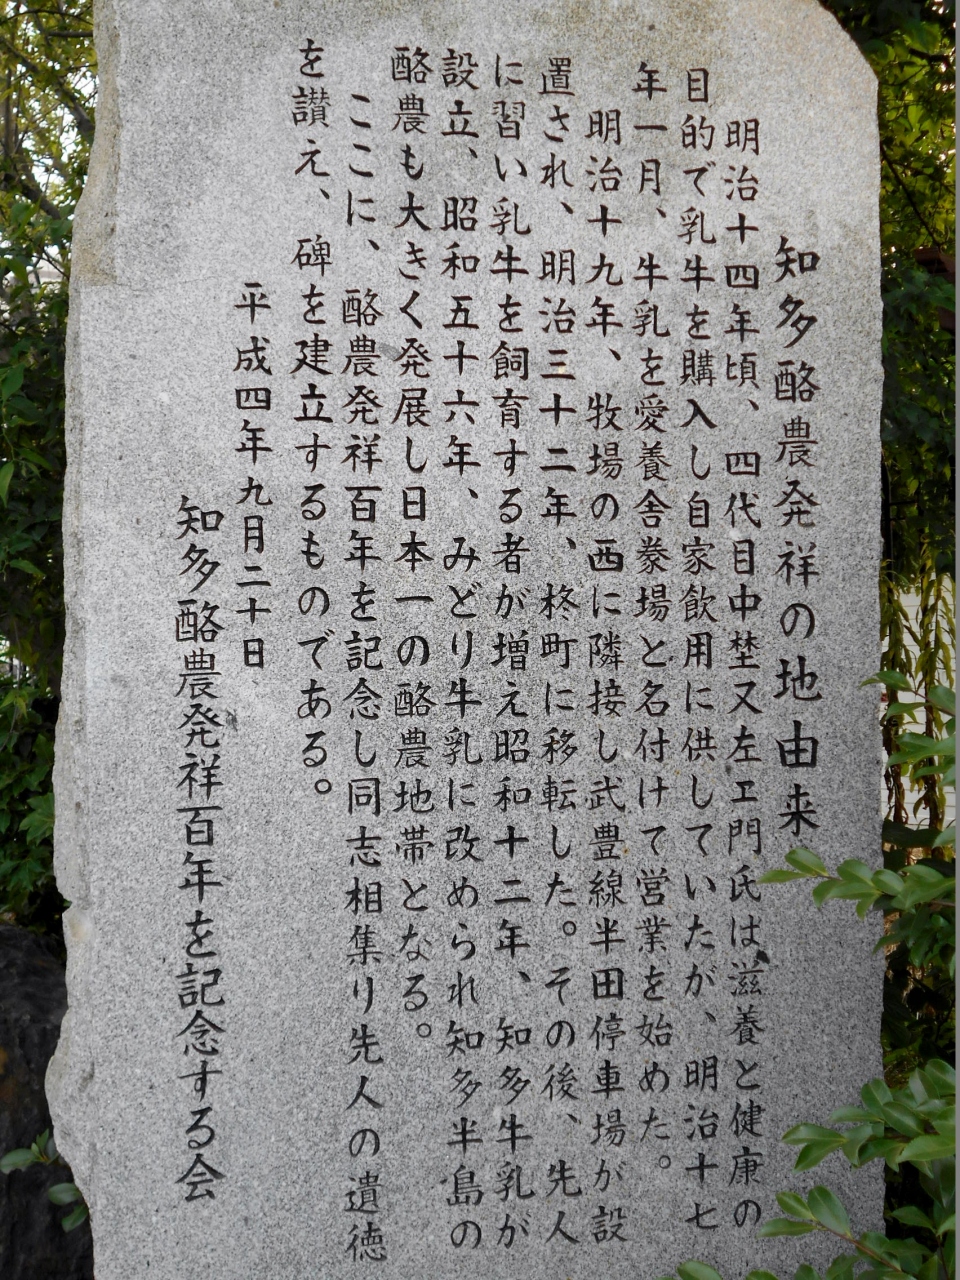 知多酪農発祥の地由来
明治十四年頃、四代目中埜又左エ門氏は滋養と健康の
目的で乳牛を購入し自家飲用に供していたが、明治十七
年一月、牛乳を愛養舎豢場と名付けて営業を始めた。
明治十九年、牧場の西に隣接し武豊線半田停車場が設
置され、明治三十二年、柊町に移転した。その後、先人
に習い乳牛を飼育する者が増え昭和十二年、知多牛乳が
設立、昭和五十六年、みどり牛乳に改められ知多半島の
酪農も大きく発展し日本一の酪農地帯となる。
ここに、酪農発祥百年を記念し同志相集り先人の遺徳
を讃え、碑を建立するものである。
平成四年九月二十日
知多酪農発祥百年を記念する会